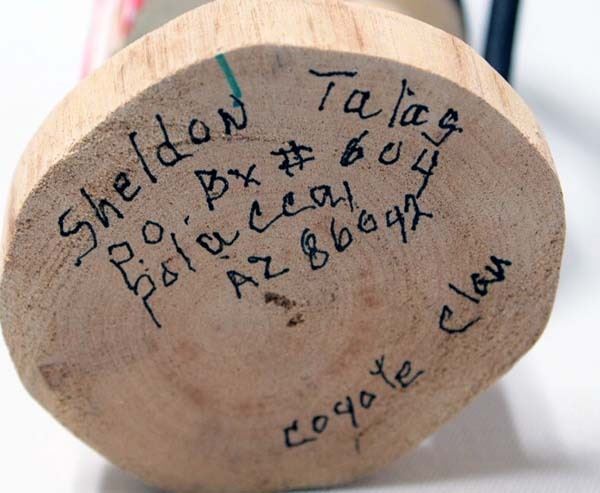 Sheldon Talas
P.O. Bx # 604
polaccai
AZ 86042
coyote clan